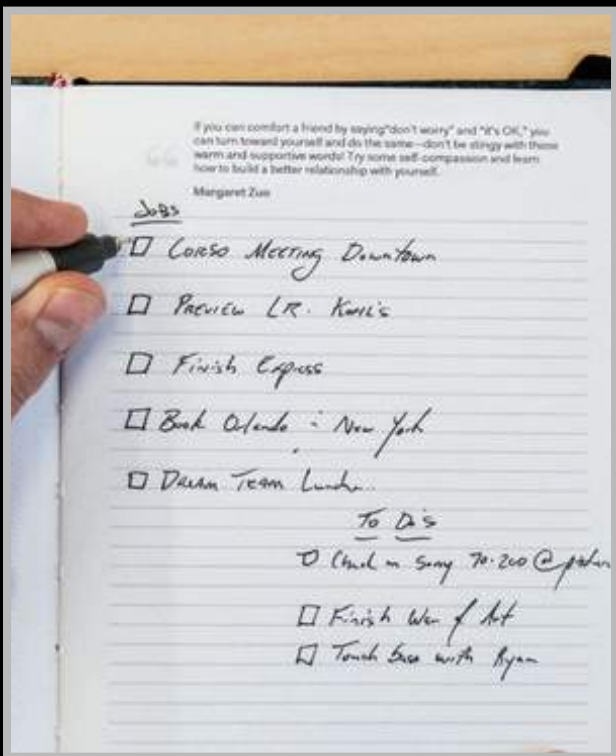 If you can comfort a friend by saying"don't worry" and "it's OK," you
can turn toward yourself and do the same—don't be stingy with those
warm and supportive words! Try some self-compassion and learn
how to build a better relationship with yourself.
Margaret Zuo
JOBS
CORSO MEETING Downtown
PREVIEW LR. KOHL'S
Finish Express
Book Orlando : New York
DREAM TEAM Lunch..
To Do's
Check on Sony 70-200 @
Finish War of Art
Touch base with Ryan